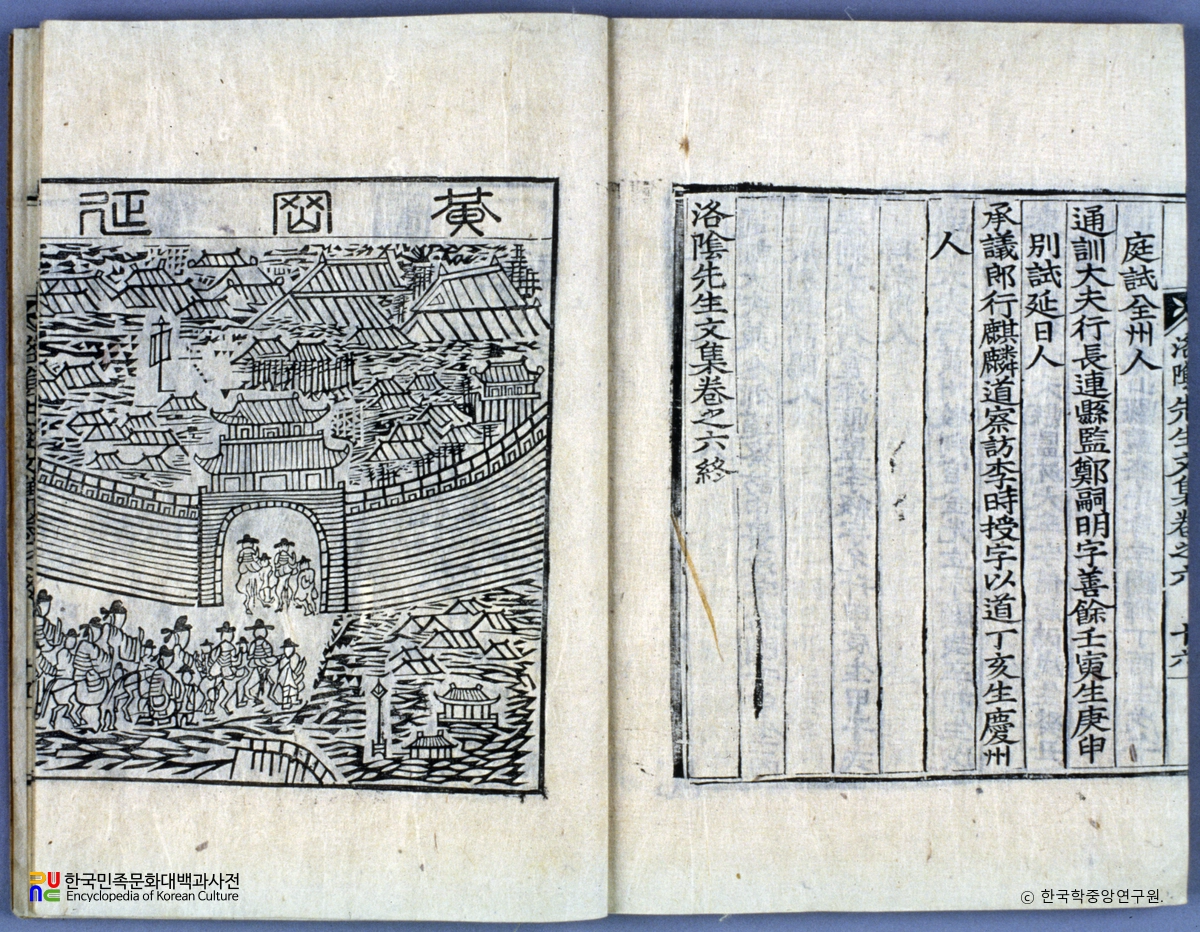 庭試全州人
通訓大夫行長連縣監鄭嗣明字善餘壬寅生庚申
別試延日人
承議郎行麒麟道察訪李時授字以道丁亥生慶州
人
洛陰先生文集卷之六終
洛陰先生文集卷之六 十六
黃岡延
한국민족문화대백과사전
Encyclopedia of Korean Culture
ⓒ 한국학중앙연구원.